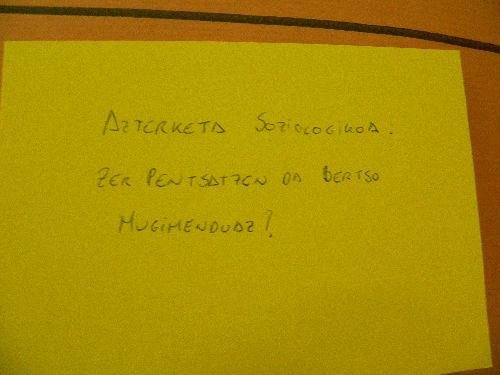 AZTERKETA SOZIOLOGIKOA:
ZER PENTSATZEN DA BERTSO
MUGIMENDUAZ?